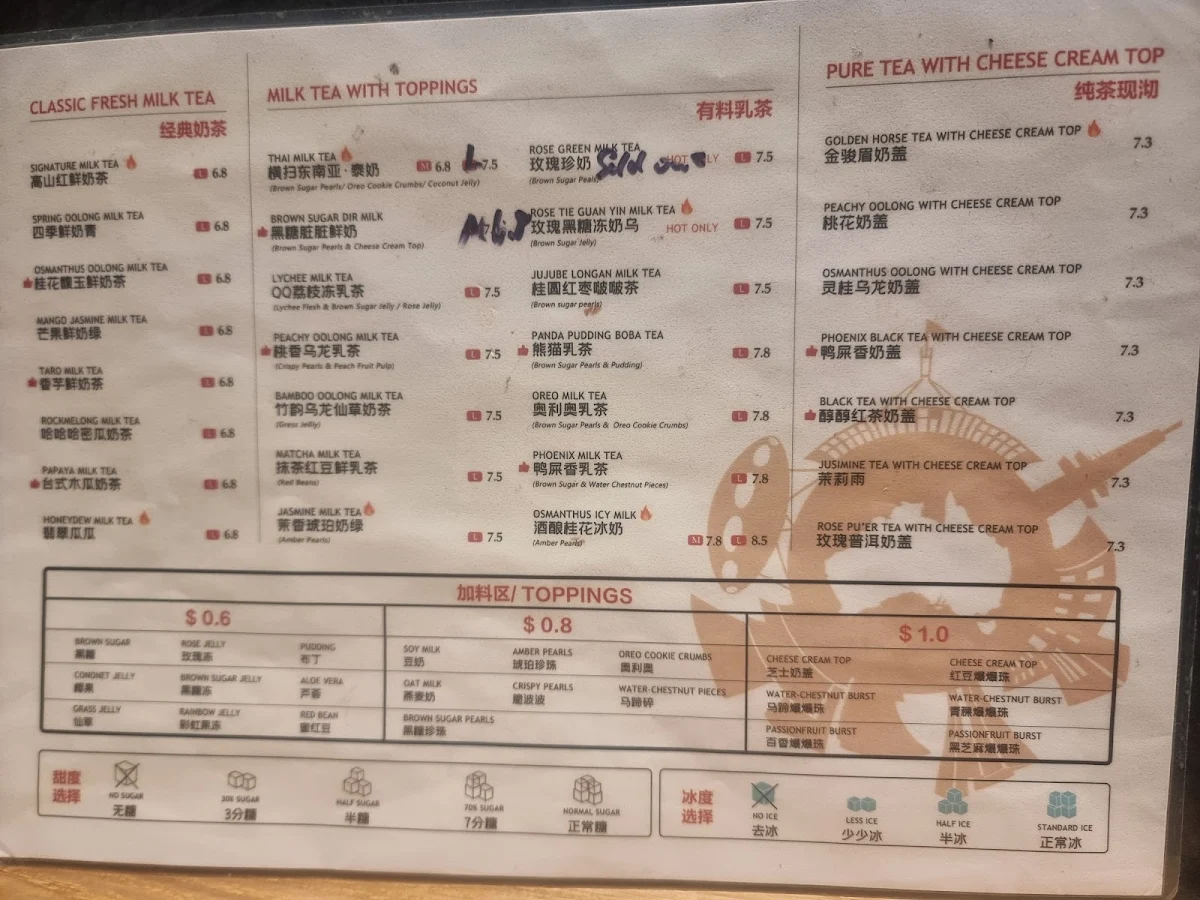 CLASSIC FRESH MILK TEA
经典奶茶
SIGNATURE MILK TEA
高山红鲜奶茶
L 6.8
SPRING OOLONG MILK TEA
四季鲜奶青
L 6.8
OSMANTHUS OOLONG MILK TEA
桂花馥玉鲜奶茶
L 6.8
MANGO JASMINE MILK TEA
芒果鲜奶绿
L 6.8
TARO MILK TEA
香芋鲜奶茶
L 6.8
ROCKMELONG MILK TEA
哈哈哈密瓜奶茶
L 6.8
PAPAYA MILK TEA
台式木瓜奶茶
L 6.8
HONEYDEW MILK TEA
翡翠瓜瓜
L 6.8
MILK TEA WITH TOPPINGS
有料乳茶
THAI MILK TEA
横扫东南亚·泰奶
M 6.8 L 7.5
(Brown Sugar Pearls/ Oreo Cookie Crumbs/ Coconut Jelly)
BROWN SUGAR DIR MILK
黑糖脏脏鲜奶
(Brown Sugar Pearls & Cheese Cream Top)
LYCHEE MILK TEA
QQ荔枝冻乳茶
L 7.5
(Lychee Flesh & Brown Sugar Jelly / Rose Jelly)
PEACHY OOLONG MILK TEA
桃香乌龙乳茶
L 7.5
(Crispy Pearls & Peach Fruit Pulp)
BAMBOO OOLONG MILK TEA
竹韵乌龙仙草奶茶
L 7.5
(Grass Jellly)
MATCHA MILK TEA
抹茶红豆鲜乳茶
L 7.5
(Red Beans)
JASMINE MILK TEA
茉香琥珀奶绿
L 7.5
(Amber Pearls)
ROSE GREEN MILK TEA
玫瑰珍奶
Sold out
L 7.5
(Brown Sugar Pearls)
ROSE TIE GUAN YIN MILK TEA
玫瑰黑糖冻奶乌
HOT ONLY L 7.5
(Brown Sugar Jelly)
JUJUBE LONGAN MILK TEA
桂圆红枣啵啵茶
L 7.5
(Brown sugar pearls)
PANDA PUDDING BOBA TEA
熊猫乳茶
L 7.8
(Brown Sugar Pearls & Pudding)
OREO MILK TEA
奥利奥乳茶
L 7.8
(Brown Sugar Pearls & Oreo Cookie Crumbs)
PHOENIX MILK TEA
鸭屎香乳茶
L 7.8
(Brown Sugar & Water Chestnut Pieces)
OSMANTHUS ICY MILK
酒酿桂花冰奶
M 7.8 L 8.5
(Amber Pearls)
PURE TEA WITH CHEESE CREAM TOP
纯茶现沏
GOLDEN HORSE TEA WITH CHEESE CREAM TOP
金骏眉奶盖
7.3
PEACHY OOLONG WITH CHEESE CREAM TOP
桃花奶盖
7.3
OSMANTHUS OOLONG WITH CHEESE CREAM TOP
灵桂乌龙奶盖
7.3
PHOENIX BLACK TEA WITH CHEESE CREAM TOP
鸭屎香奶盖
7.3
BLACK TEA WITH CHEESE CREAM TOP
醇醇红茶奶盖
7.3
JUSIMINE TEA WITH CHEESE CREAM TOP
茉莉雨
7.3
ROSE PU'ER TEA WITH CHEESE CREAM TOP
玫瑰普洱奶盖
7.3
加料区/ TOPPINGS
$ 0.6
BROWN SUGAR ROSE JELLY PUDDING
黑糖 玫瑰冻 布丁
CONONET JELLY BROWN SUGAR JELLY ALOE VERA
椰果 黑糖冻 芦荟
GRASS JELLY RAINBOW JELLY RED BEAN
仙草 彩虹果冻 蜜红豆
$ 0.8
SOY MILK AMBER PEARLS OREO COOKIE CRUMBS
豆奶 琥珀珍珠 奥利奥
OAT MILK CRISPY PEARLS WATER-CHESTNUT PIECES
燕麦奶 脆波波 马蹄碎
BROWN SUGAR PEARLS
黑糖珍珠
$ 1.0
CHEESE CREAM TOP CHEESE CREAM TOP
芝士奶盖 红豆爆爆珠
WATER-CHESTNUT BURST WATER-CHESTNUT BURST
马蹄爆爆珠 青稞爆爆珠
PASSIONFRUIT BURST PASSIONFRUIT BURST
百香爆爆珠 黑芝麻爆爆珠
甜度
选择
NO SUGAR 30% SUGAR HALF SUGAR 70% SUGAR NORMAL SUGAR
无糖 3分糖 半糖 7分糖 正常糖
冰度
选择
NO ICE LESS ICE HALF ICE STANDARD ICE
去冰 少少冰 半冰 正常冰